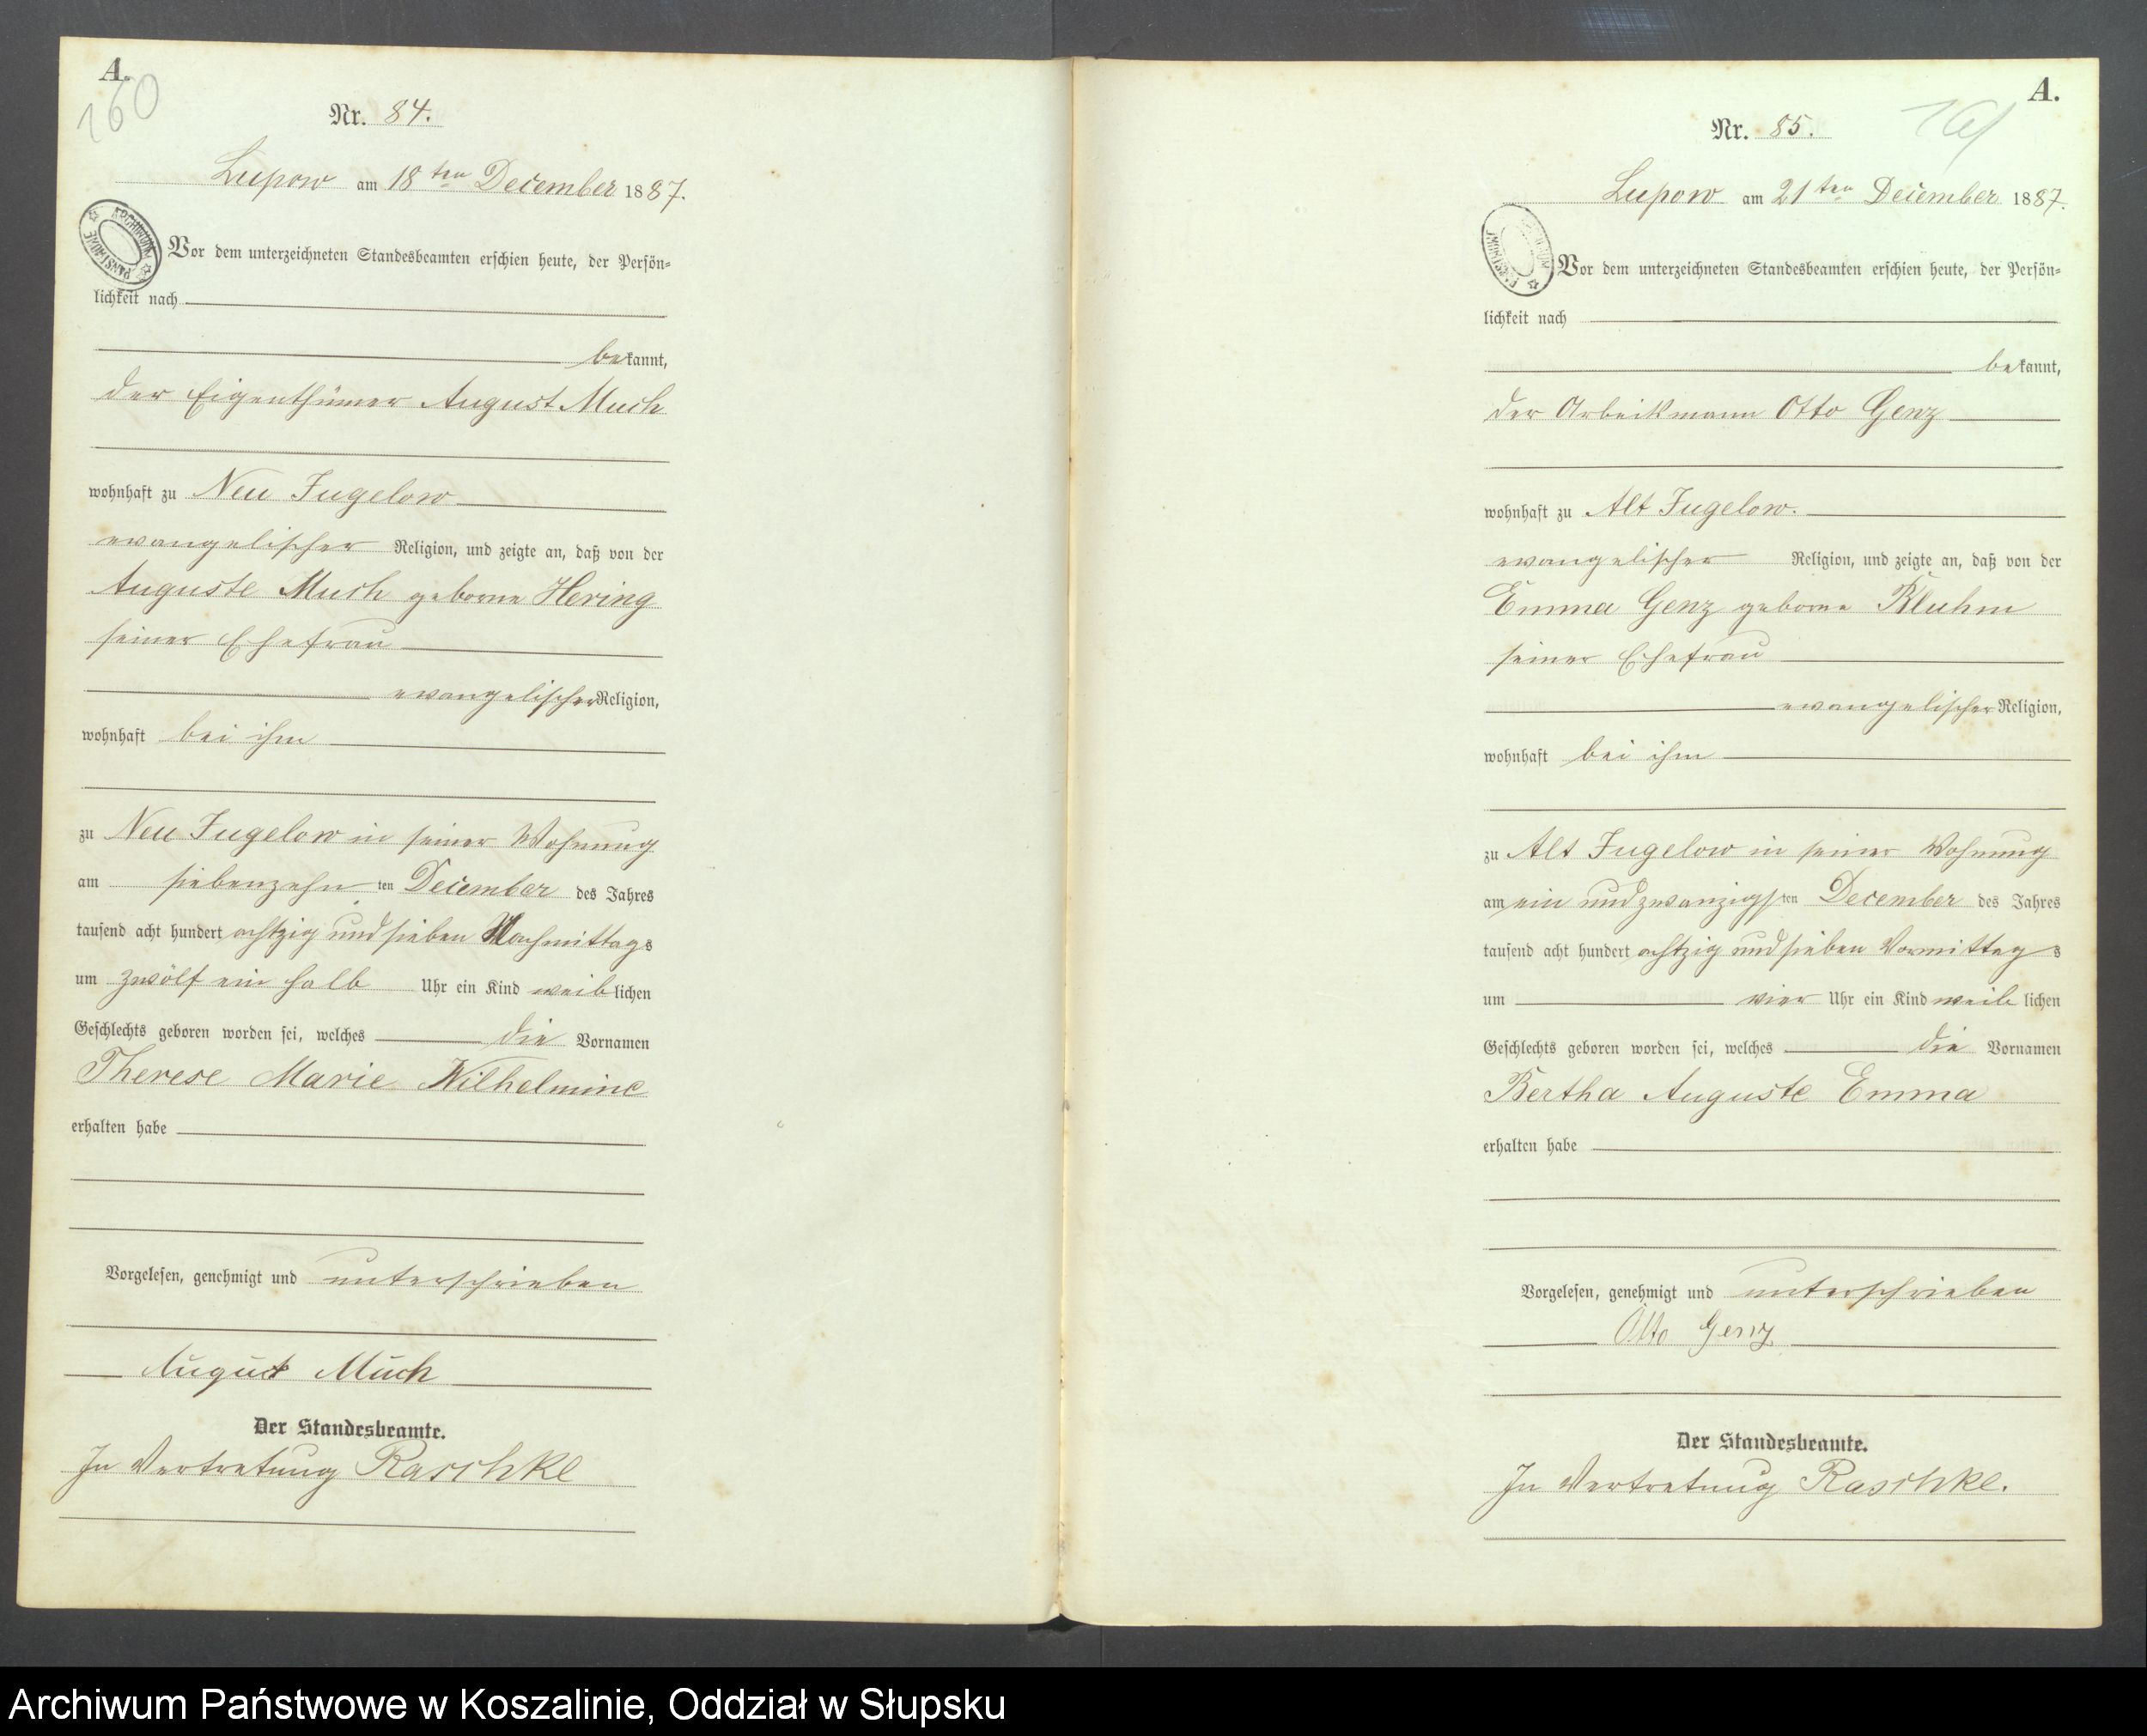 A.
160
Nr. 84.
Lupow am 18ten December 1887.
ARCHIWUM PAŃSTWOWE
Vor dem unterzeichneten Standesbeamten erschien heute, der Persön-
lichkeit nach
bekannt,
der Eigenthümer August Much
wohnhaft zu Neu Jugelow
evangelischer Religion, und zeigte an, daß von der
Auguste Much geborne Hering
seiner Ehefrau
evangelischer Religion,
wohnhaft bei ihm
zu Neu Jugelow in seiner Wohnung
am siebenzehn ten December des Jahres
tausend acht hundert achtzig und sieben Nachmittags
um zwölf ein halb Uhr ein Kind weiblichen
Geschlechts geboren worden sei, welches die Vornamen
Therese Marie Wilhelmine
erhalten habe
Vorgelesen, genehmigt und unterschrieben
August Much
Der Standesbeamte.
In Vertretung Raschke
A.
161
Nr. 85.
Lupow am 21ten December 1887.
Vor dem unterzeichneten Standesbeamten erschien heute, der Persön-
lichkeit nach
bekannt,
der Arbeitsmann Otto Genz
wohnhaft zu Alt Jugelow.
evangelischer Religion, und zeigte an, daß von der
Emma Genz geborne Bluhm
seiner Ehefrau
evangelischer Religion,
wohnhaft bei ihm
zu Alt Jugelow in seiner Wohnung
am ein und zwanzigsten December des Jahres
tausend acht hundert achtzig und sieben Vormittags
um vier Uhr ein Kind weiblichen
Geschlechts geboren worden sei, welches die Vornamen
Bertha Auguste Emma
erhalten habe
Vorgelesen, genehmigt und unterschrieben
Otto Genz
Der Standesbeamte.
In Vertretung Raschke.
Archiwum Państwowe w Koszalinie, Oddział w Słupsku